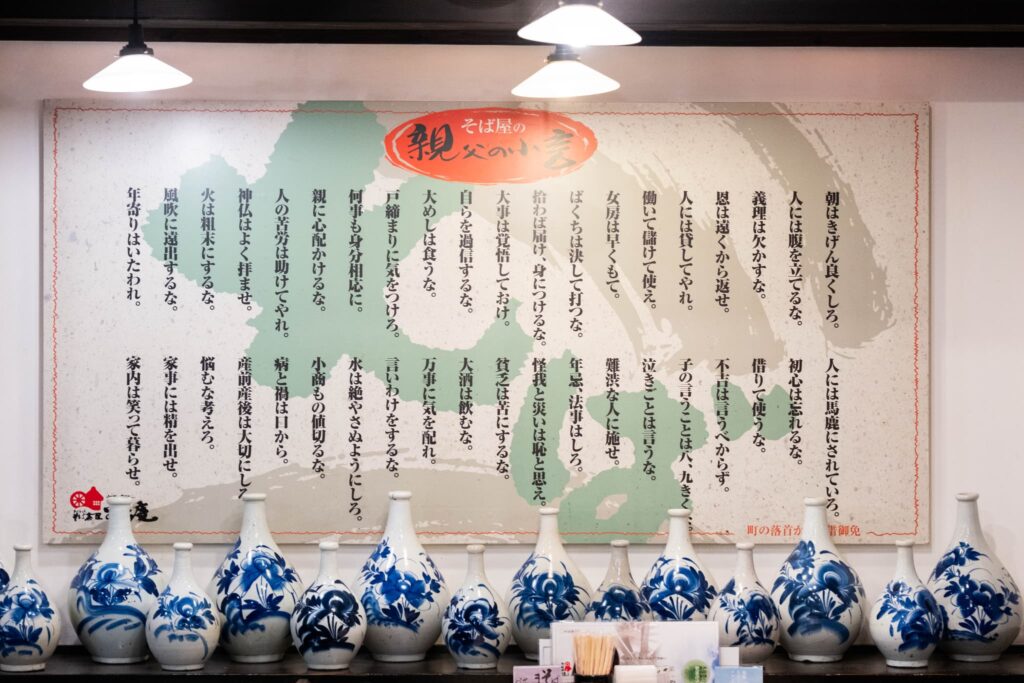 そば屋の
親父の小言
朝はきげん良くしろ。
人には腹を立てるな。
義理は欠かすな。
恩は遠くから返せ。
人には貸してやれ。
働いて儲けて使え。
女房は早くもて。
ばくちは決して打つな。
拾わば届け、身につけるな。
大事は覚悟しておけ。
自らを過信するな。
大めしは食うな。
戸締まりに気をつけろ。
何事も身分相応に。
親に心配かけるな。
人の苦労は助けてやれ。
神仏はよく拝ませ。
火は粗末にするな。
風吹に遠出するな。
年寄りはいたわれ。
人には馬鹿にされていろ。
初心は忘れるな。
借りて使うな。
不吉は言うべからず。
子の言うことは八、九きくな
泣きごとは言うな。
難渋な人に施せ。
年忌、法事はしろ。
怪我と災いは恥と思え。
貧乏は苦にするな。
大酒は飲むな。
万事に気を配れ。
言いわけをするな。
水は絶やさぬようにしろ。
小商もの値切るな。
病と禍は口から。
産前産後は大切にしろ
悩むな考えろ。
家事には精を出せ。
家内は笑って暮らせ。
町の落首か
御免
庵